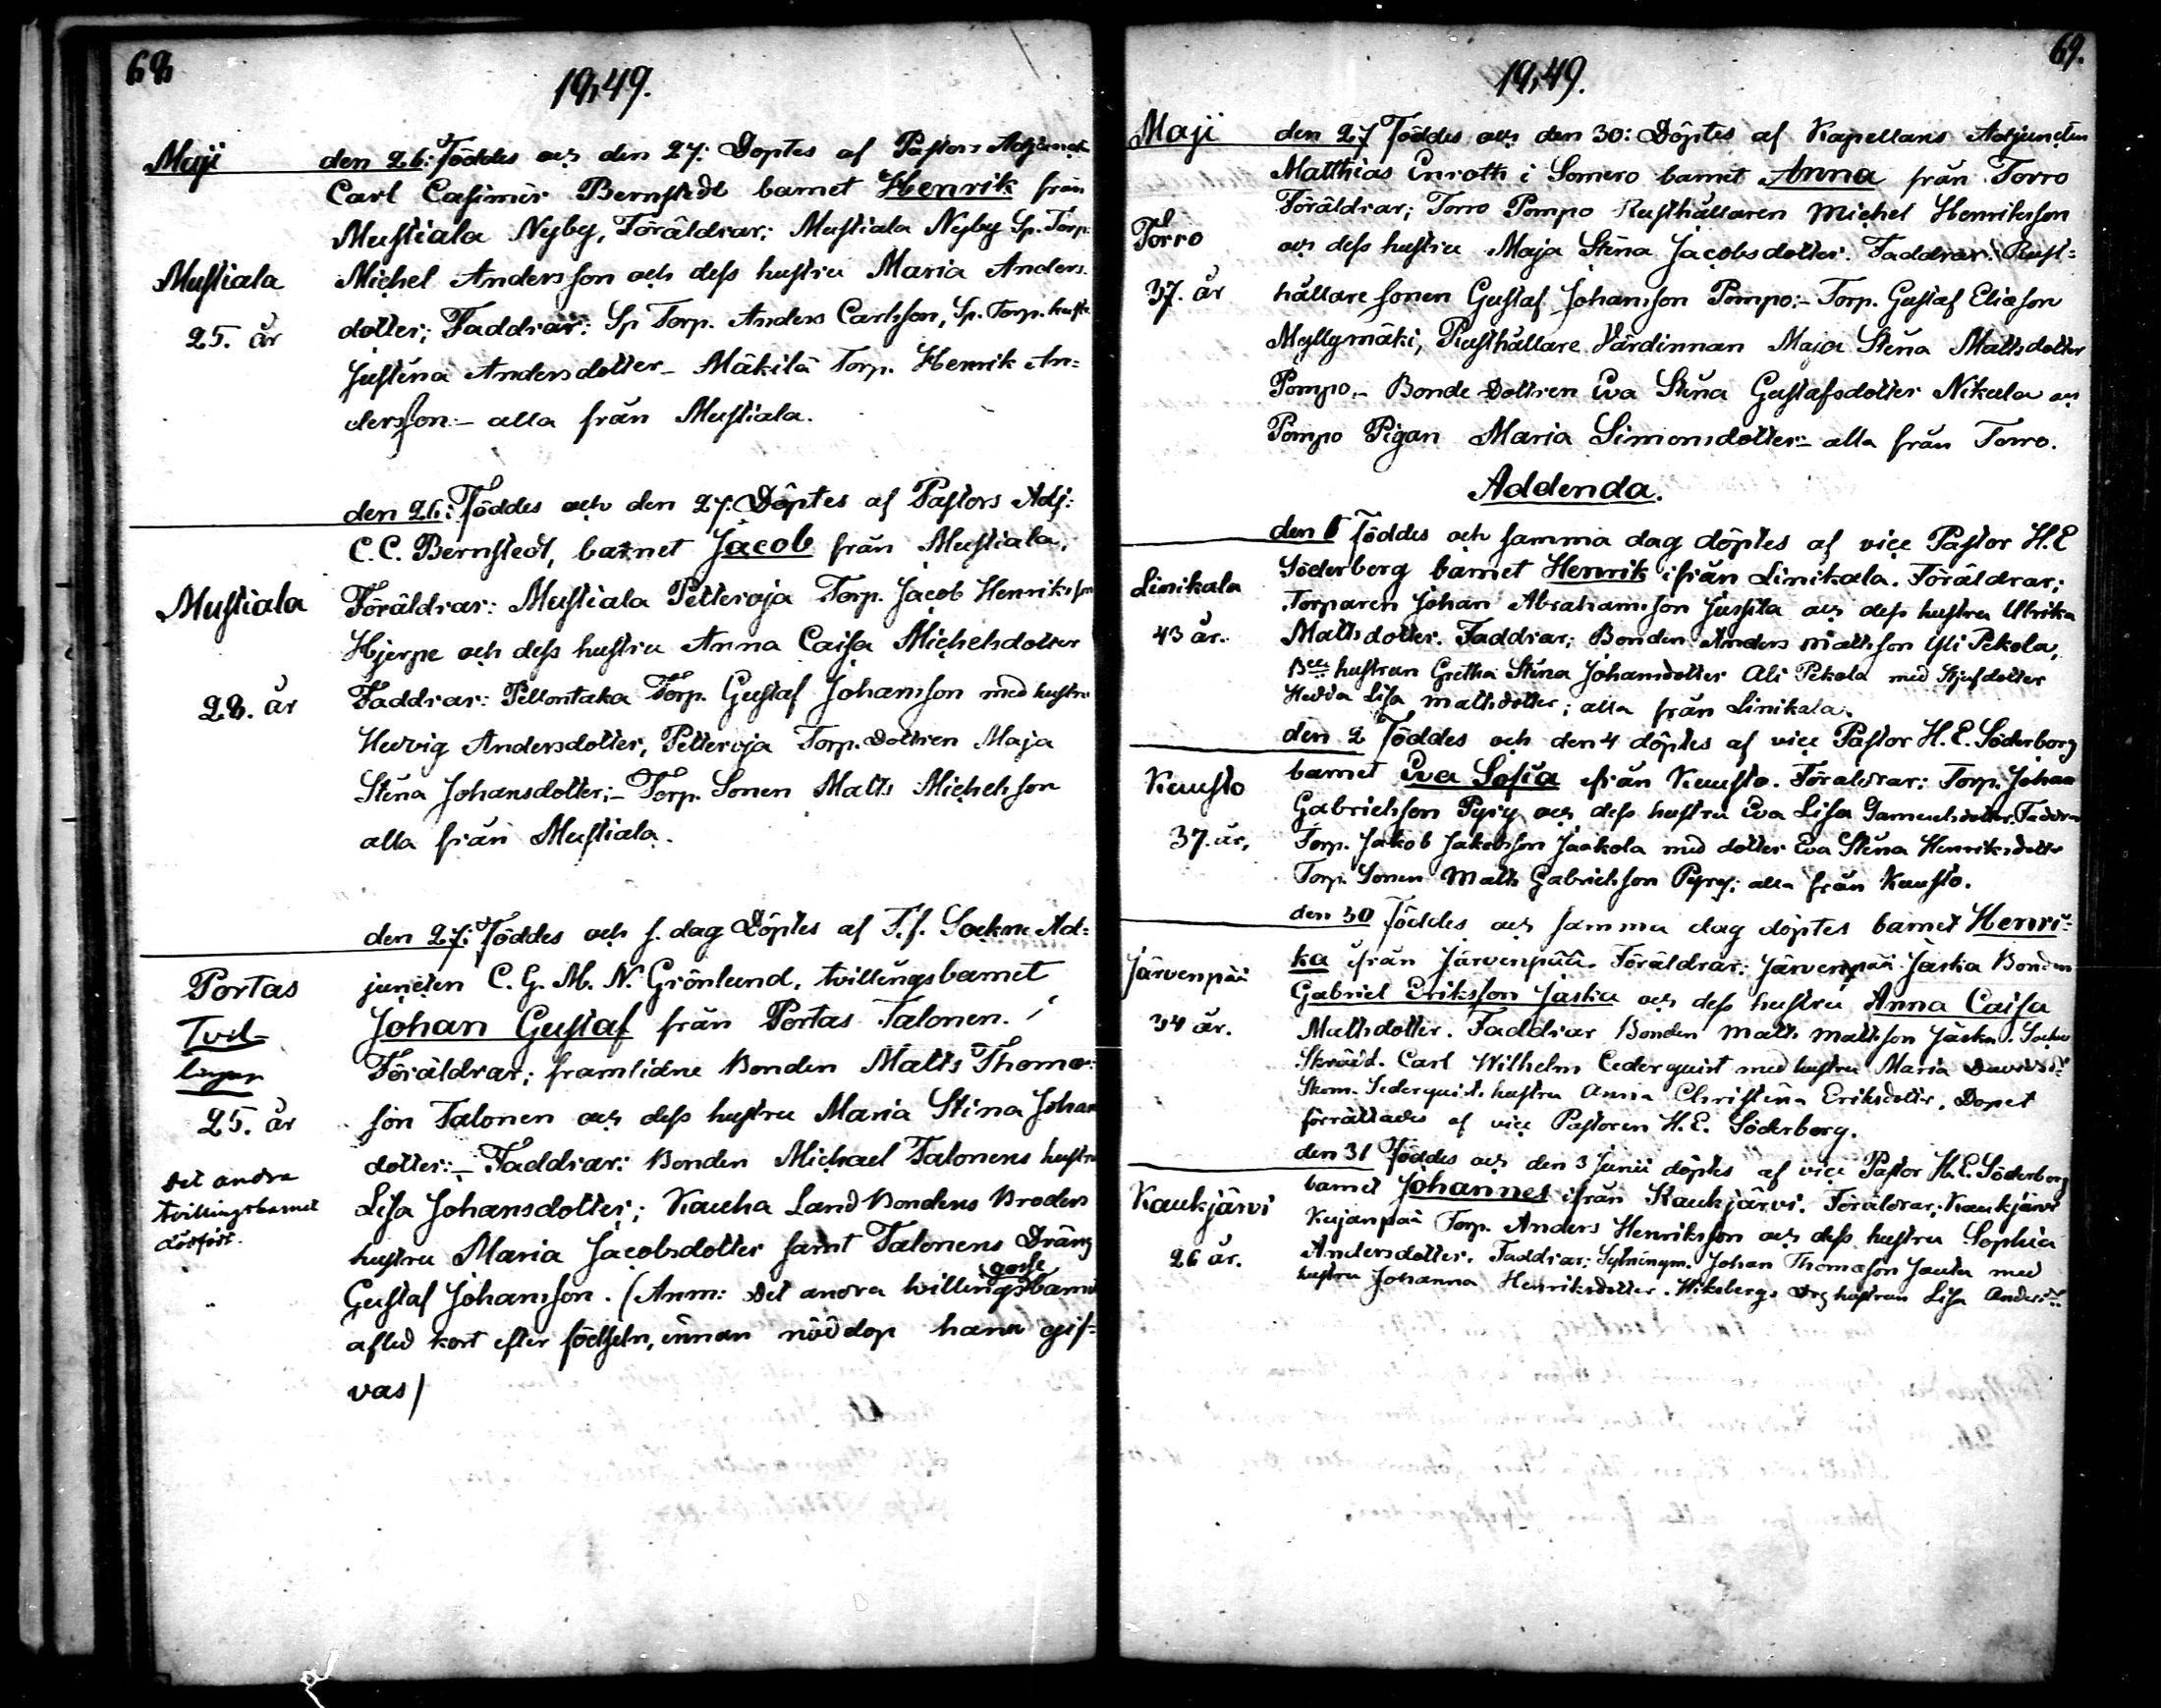 68
1849.
Maji
den 26: Föddes och den 27: Doptes af Pastors Adjunct
Carl Casimir Bernstedt barnet Henrik från
Mustiala Nyby, Föräldrar: Mustiala Nyby Sp. Torp.
Mustiala
Michel Andersson och dess hustru Maria Anders
25. år
dotter; Faddrar: Sp Torp. Anders Carlsson, Sp. Torp. hustr
Justina Andersdotter - Mäkilä Torp. Henrik An=
dersson:- alla från Mustiala.
den 26: Föddes och den 27. Döptes af Pastors Adj:
C. C. Bernstedt, barnet Jacob från Mustiala.
Mustiala
Föräldrar: Mustiala Petteroja Torp. Jacob Henriksson
Hjerpe och dess hustru Anna Caisa Michelsdotter
28. år
Faddrar: Pellontaka Torp. Gustaf Johansson med hustru
Hedvig Andersdotter, Petteroja Torp. Dottren Maja
Stina Johansdotter;- Torp. Sonen Matts Michelsson
alla från Mustiala.
den 27: Föddes och s. dag Döptes af T. f. Sockne Ad=
Portas
juncten C. G. M. N. Grönlund, tvillingsbarnet
Tvil-
Johan Gustaf från Portas Talonen.
lingar
Föräldrar; framlidne Bonden Matts Thoma=
25. år
son Talonen och dess hustru Maria Stina Johan
dotter:- Faddrar: Bonden Michael Talonens hustru
Det andra
tvillingsbarnet
dödfödt.
Lisa Johansdotter; Kauha Land Bondens Broders
hustru Maria Jacobsdotter samt Talonens Dräng
gosse
Gustaf Johansson. (Anm: Det andra tvillingsbarnet
afled kort efter födseln, innan nöddop hann gif=
vas)
69.
1849.
Maji
den 27 Föddes och den 30: Döptes af Kapellans Adjuncten
Matthias Enroth i Somero barnet Anna från Torro
Föräldrar; Torro Pompo Rusthållaren Michel Henriksson
Torro
och dess hustru Maja Stina Jacobsdotter. Faddrar: Rust=
37. år
hållare sonen Gustaf Johansson Pompo:- Torp. Gustaf Eliason
Myllymäki, Rusthållare Värdinnan Maja Stina Mattsdotter
Pompo.- Bonde Dottren Eva Stina Gustafsdotter Nikula och
Pompo Pigan Maria Simonsdotter:- alla från Torro.
Addenda.
den 6 Föddes och samma dag döptes af vice Pastor H. E
Söderberg barnet Henrik ifrån Linikala. Föräldrar;
Linikala
Torparen Johan Abrahamsson Jussila och dess hustru Ulrika
43 år.
Mattsdotter. Faddrar; Bonden Anders Mattsson Yli Pekola,
Bde hustrun Gretha Stina Johansdotter Ali Pekola med Styfdotter
Hedda Lisa Mattsdotter; alla från Linikala.
den 2 Föddes och den 4 döptes af vice Pastor H. E. Söderborg
Kuusto
barnet Eva Sofia ifrån Kuusto. Föräldrar: Torp. Johan
Gabrielsson Pyry och dess hustru Eva Lisa Samuelsdotter. Faddrar
37. år,
Torp. Jakob Jakobsson Jaakola med dotter Eva Stina Henriksdotter
Torp. Sonen Matts Gabrielsson Pyry; alla från Kuusto.
den 30 Föddes och samma dag döptes barnet Henri=
Järvenpää
ka ifrån Järvenpää. Föräldrar: Järvenpää Jaska Bonden
Gabriel Eriksson Jaska och dess hustru Anna Caisa
34 år.
Mattsdotter. Faddrar Bonden Matts Mattsson Jaska. Sockne
Skrädd. Carl Wilhelm Cederquist med hustru Maria Davidsd:
Skom. Cederquists hustru Anna Christina Eriksdotter. Dopet
förrättades af vice Pastoren H. E. Söderberg.
den 31 Föddes och den 3 Junii döptes af vice Pastor H. E. Söderberg
Kaukjärvi
barnet Johannes ifrån Kaukjärvi. Föräldrar; Kaukjärvi
Kujanpää Torp. Anders Henriksson och dess hustru Sophia
26 år.
Andersdotter. Faddrar; Sytningm. Johan Thomason Jauta med
hustru Johanna Henriksdotter. Wiksbergs Drg hustrun Lisa Andersd: